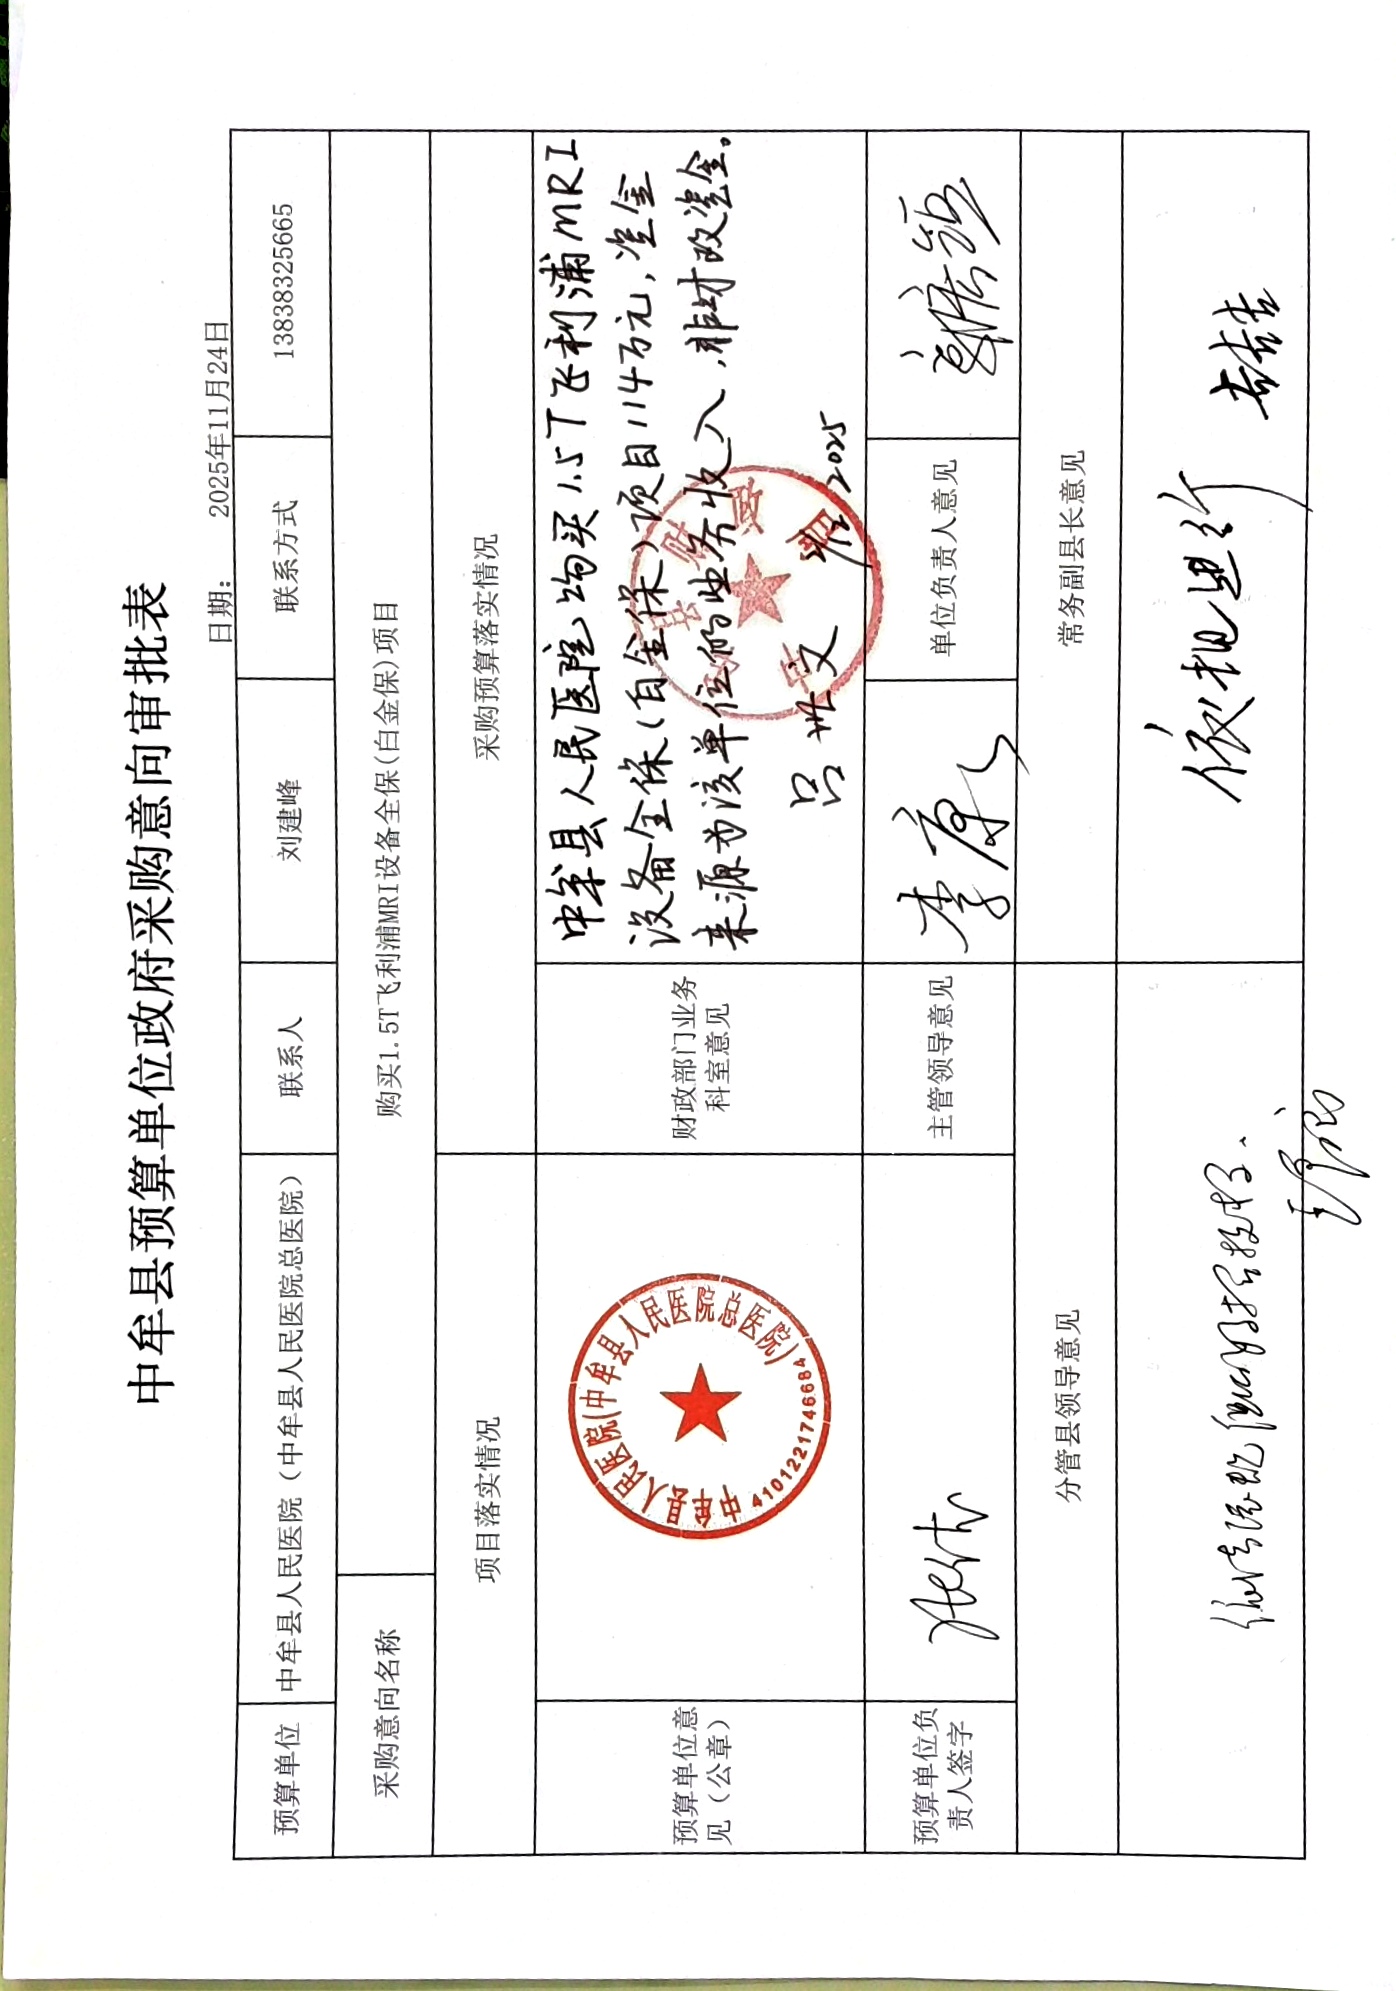 中牟县预算单位政府采购意向审批表
日期： 2025年11月24日
预算单位 中牟县人民医院（中牟县人民医院总医院） 联系人 刘建峰 联系方式 13838325665
采购意向名称 购买1.5T飞利浦MRI设备全保(白金保)项目
项目落实情况 采购预算落实情况
预算单位意
见（公章）
中牟县人民医院(中牟县人民医院总医院)
4101221746684
财政部门业务
科室意见
中牟县人民医院购买1.5T飞利浦MRI
设备全保(白金保)项目114万元,资金
来源为该单位的业务收入,非财政资金。
吕世文
2025
预算单位负
责人签字
主管领导意见 李康 单位负责人意见
分管县领导意见 常务副县长意见